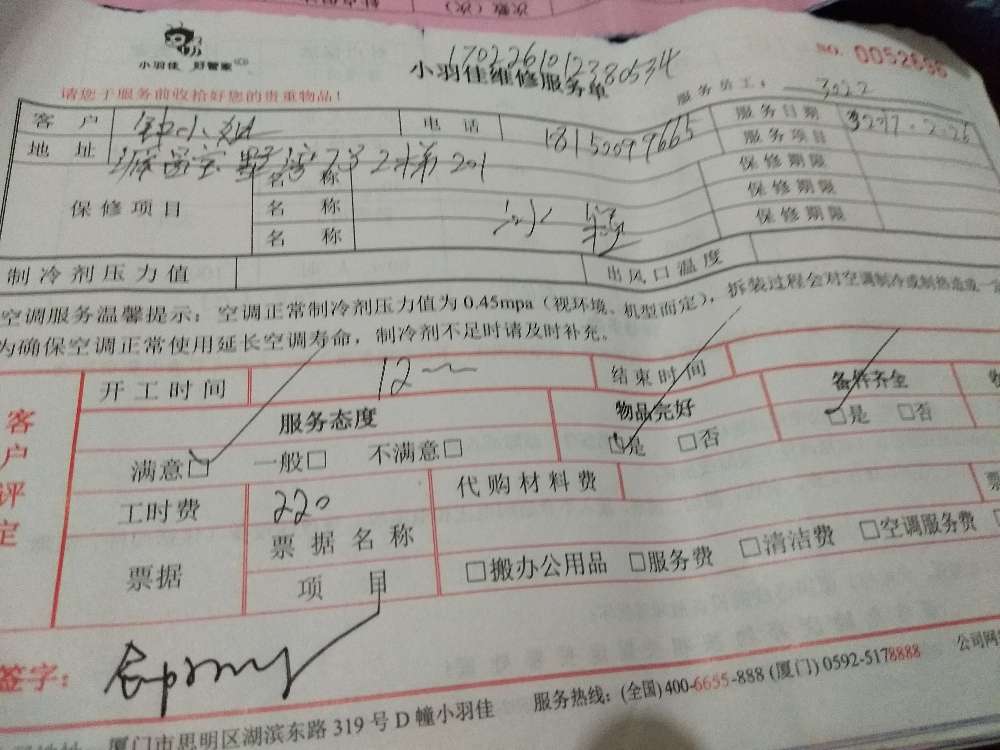 次数（次）
小羽佳 好管家
1702261012380534
小羽佳维修服务单
NO. 0052696
请您于服务前收拾好您的贵重物品！
服务员工： 3022
客户 钟小姐 电话 18150099665 服务日期
地址 2梯 201 服务项目
保修项目 名称 保修期限
名称 保修期限
名称 保修期限
制冷剂压力值 出风口温度
空调服务温馨提示：空调正常制冷剂压力值为0.45mpa（视环境、机型而定），拆装过程会对空调制冷或制热造成一定
为确保空调正常使用延长空调寿命，制冷剂不足时请及时补充。
客户评定
开工时间 12 结束时间
服务态度 物品完好 备件齐全
满意□ 一般□ 不满意□ □是 □否 □是 □否
工时费 220 代购材料费
票据 票据名称 □搬办公用品 □服务费 □清洁费 □空调服务费
项目
签字：
厦门市思明区湖滨东路319号D幢小羽佳 服务热线：(全国)400-6655-888 (厦门) 0592-5178888 公司网